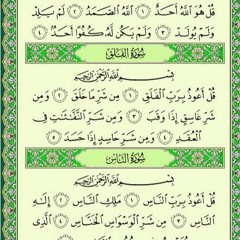 قُلْ هُوَ ٱللَّهُ أَحَدٌ ١ ٱللَّهُ ٱلصَّمَدُ ٢ لَمْ يَلِدْ
وَلَمْ يُولَدْ ٣ وَلَمْ يَكُن لَّهُۥ كُفُوًا أَحَدٌۢ ٤
سُورَةُ ٱلْفَلَقِ
بِسْمِ ٱللَّهِ ٱلرَّحْمَٰنِ ٱلرَّحِيمِ
قُلْ أَعُوذُ بِرَبِّ ٱلْفَلَقِ ١ مِن شَرِّ مَا خَلَقَ ٢ وَمِن
شَرِّ غَاسِقٍ إِذَا وَقَبَ ٣ وَمِن شَرِّ ٱلنَّفَّٰثَٰتِ فِى
ٱلْعُقَدِ ٤ وَمِن شَرِّ حَاسِدٍ إِذَا حَسَدَ ٥
سُورَةُ ٱلنَّاسِ
بِسْمِ ٱللَّهِ ٱلرَّحْمَٰنِ ٱلرَّحِيمِ
قُلْ أَعُوذُ بِرَبِّ ٱلنَّاسِ ١ مَلِكِ ٱلنَّاسِ ٢
إِلَٰهِ ٱلنَّاسِ ٣ مِن شَرِّ ٱلْوَسْوَاسِ ٱلْخَنَّاسِ ٤ ٱلَّذِى